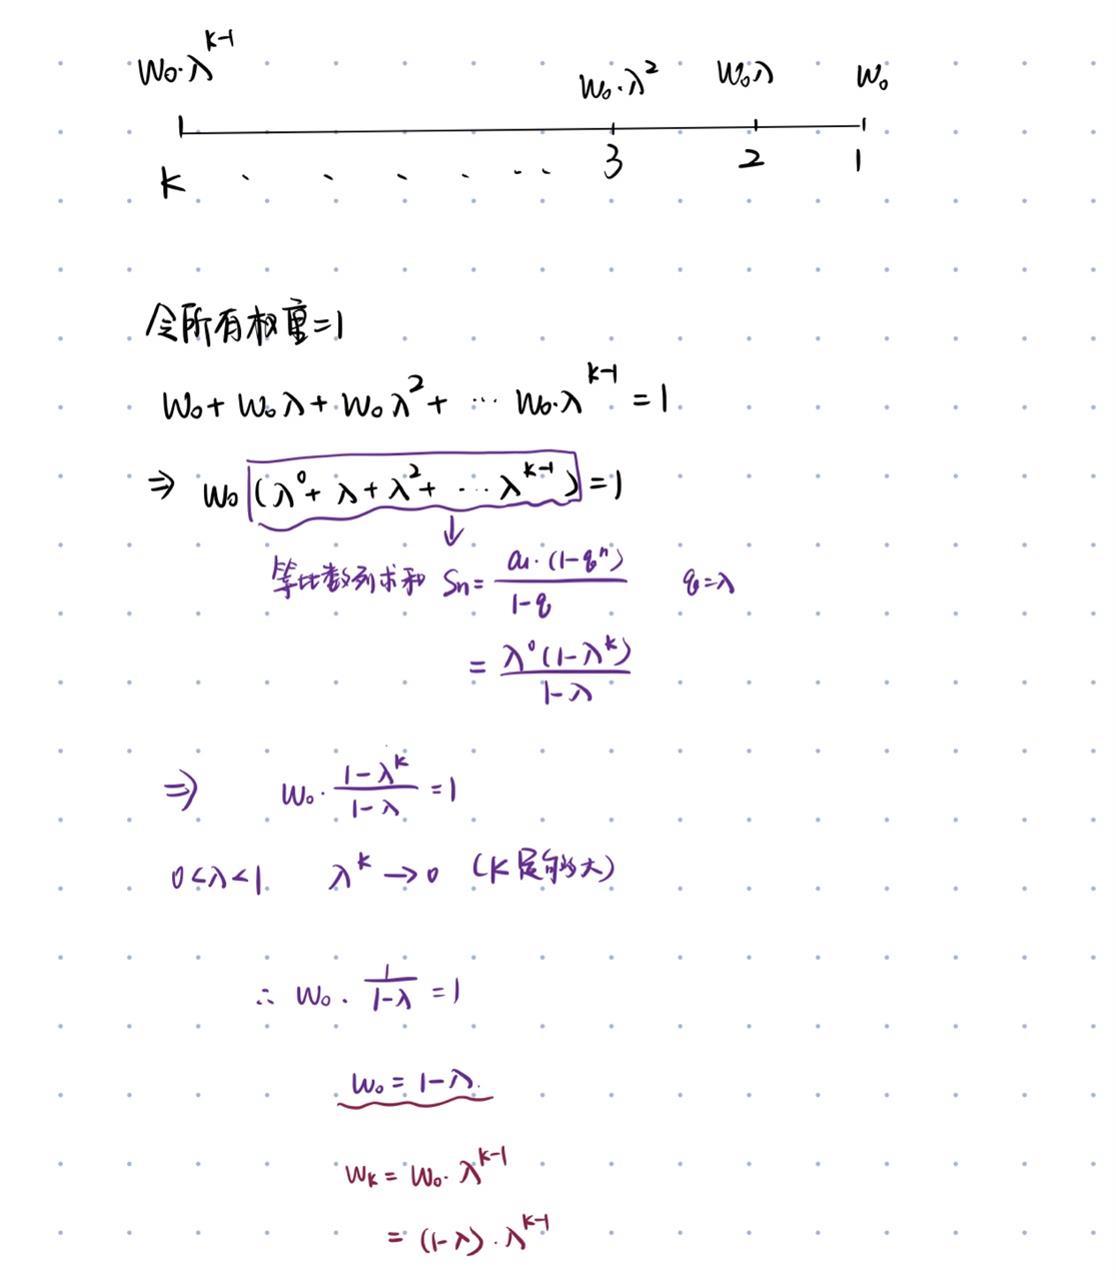 W₀·λ^(k-1) W₀·λ² W₀λ W₀
K . . . . . . . 3 2 1
令所有权重=1
W₀+W₀λ+W₀λ²+ ⋯ W₀·λ^(k-1) = 1
⇒ W₀(λ⁰+λ+λ²+ ⋯ λ^(k-1))=1
↓
等比数列求和 Sn= a₁·(1-qⁿ)/(1-q) q=λ
= λ⁰(1-λ^k)/(1-λ)
⇒ W₀·(1-λ^k)/(1-λ) =1
0<λ<1 λ^k→0 (K足够大)
∴ W₀·1/(1-λ) =1
W₀=1-λ
W_K=W₀·λ^(k-1)
=(1-λ)·λ^(k-1)